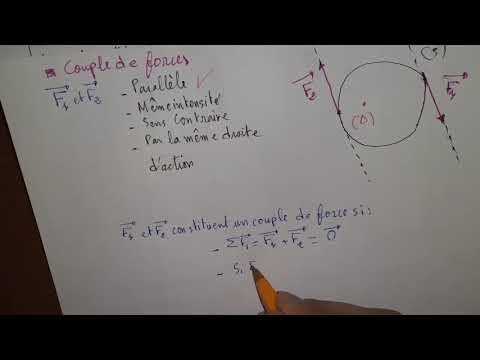 Couple de forces
F₁ et F₂
- Parallèle
- Même intensité
- Sens Contraire
- Pas la même droite
d'action
F₂
(Δ)
F₁
F₁ et F₂ constituent un couple de force si :
- ΣFᵢ = F₁ + F₂ = 0
- Si